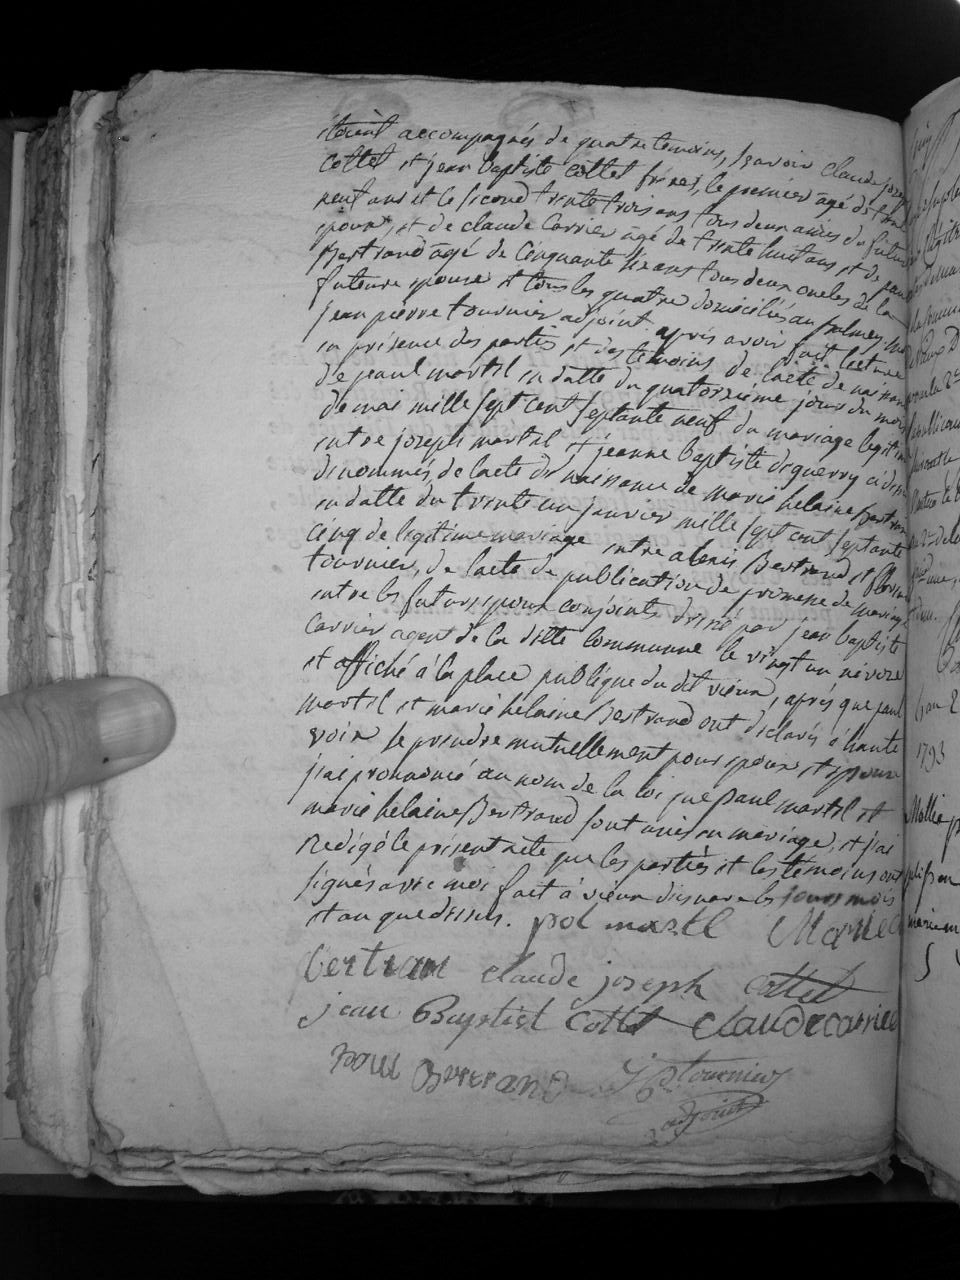 étoient accompagnés de quatre temoins, sçavoir claude joseph
Cottet et jean baptiste Cottet freres, le premier âgé de trente
neuf ans et le second trente trois ans tous deux amies du futur
epoux, et de claude Carrier âgé de trente huit ans et de paul
Bertrand âgé de Cinquante six ans tous deux oncles de la
future epouse et tous les quatre domiciliés au
jean pierre tournier adjoint après avoir fait lecture
en presence des parties et des temoins de l'acte de naissance
de paul martel en datte du quatorzieme jour du mois
de mai mille sept cent septante neuf du mariage legitime
entre joseph martel et jeanne baptiste diguerry ci dessus
denommés, de l'acte de naissance de marie helaine Bertrand
en datte du trente un janvier mille sept cent septante
cinq de legitime mariage entre alexis Bertrand et
tournier, de l'acte de publication de promesse de mariage
entre les futurs epoux conjoints dressé par jean baptiste
Carrier agent de la ditte Communne le vingt un nivose
et affiché à la place publique du dit vieux, après que paul
martel et marie helaine Bertrand ont declarés à haute
voix se prendre mutuellement pour epoux et epouse
j'ai prononcé au nom de la loi que paul martel et
marie helaine Bertrand sont unis en mariage, et j'ai
redigé le présent acte que les parties et les temoins ont
signés avec moi fait à vieux les jours mois
et an que dessus. pol martel Marie
Bertran claude joseph Cottet
jean Baptist Cottet claude carrier
poul Bertrand J P Tournier
adjoint
1793